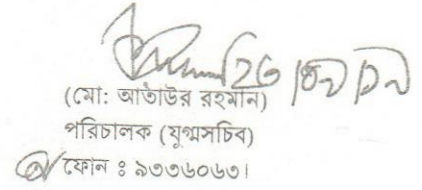 (মো: আতাউর রহমান)
পরিচালক (যুগ্মসচিব)
ফোন ঃ ৯৩৩৬০৬৩।